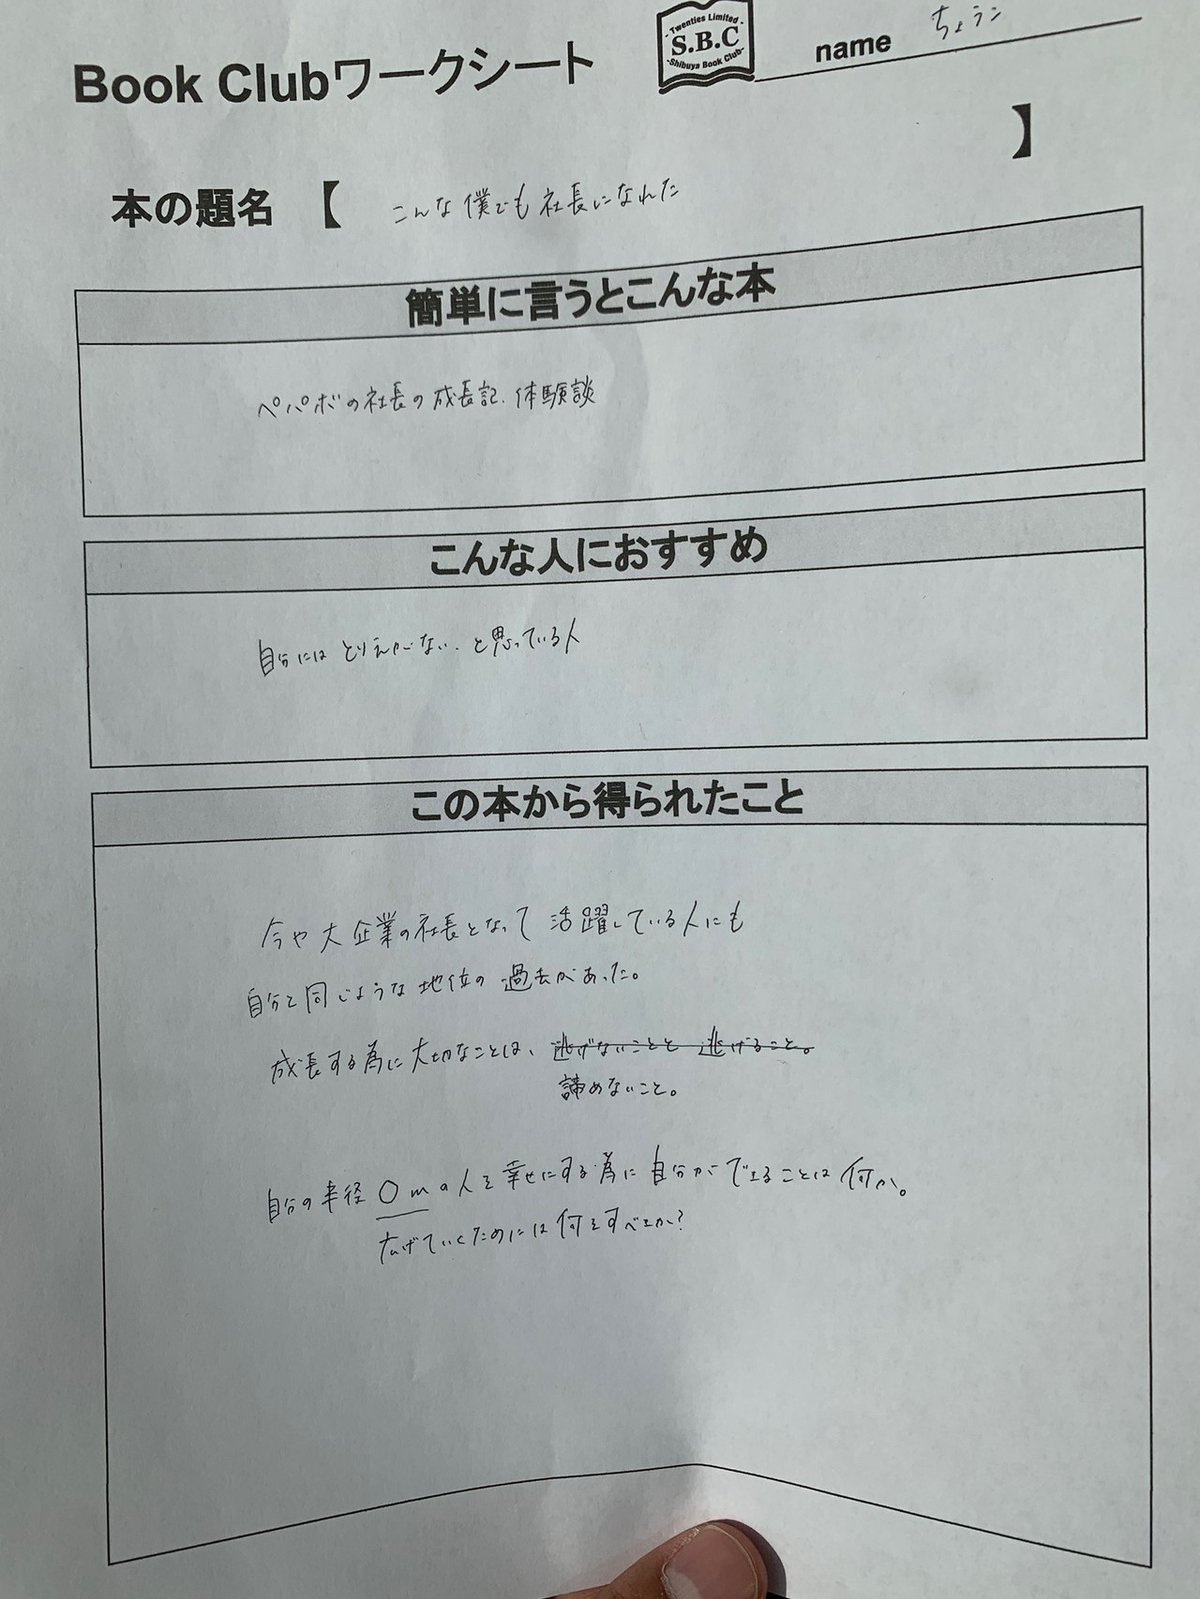 Book Clubワークシート
- Twenties Limited -
S.B.C
-Shibuya Book Club-
name ちょうこ
本の題名 【 こんな僕でも社長になれた 】
簡単に言うとこんな本
ペパボの社長の成長記、体験談
こんな人におすすめ
自分にはとりえがない、と思っている人
この本から得られたこと
今や大企業の社長となって活躍している人にも
自分と同じような地位の過去があった。
成長する為に大切なことは、逃げないことと逃げること。
諦めないこと。
自分の半径〇mの人を幸せにする為に自分ができることは何か。
広げていくためには何をすべきか?